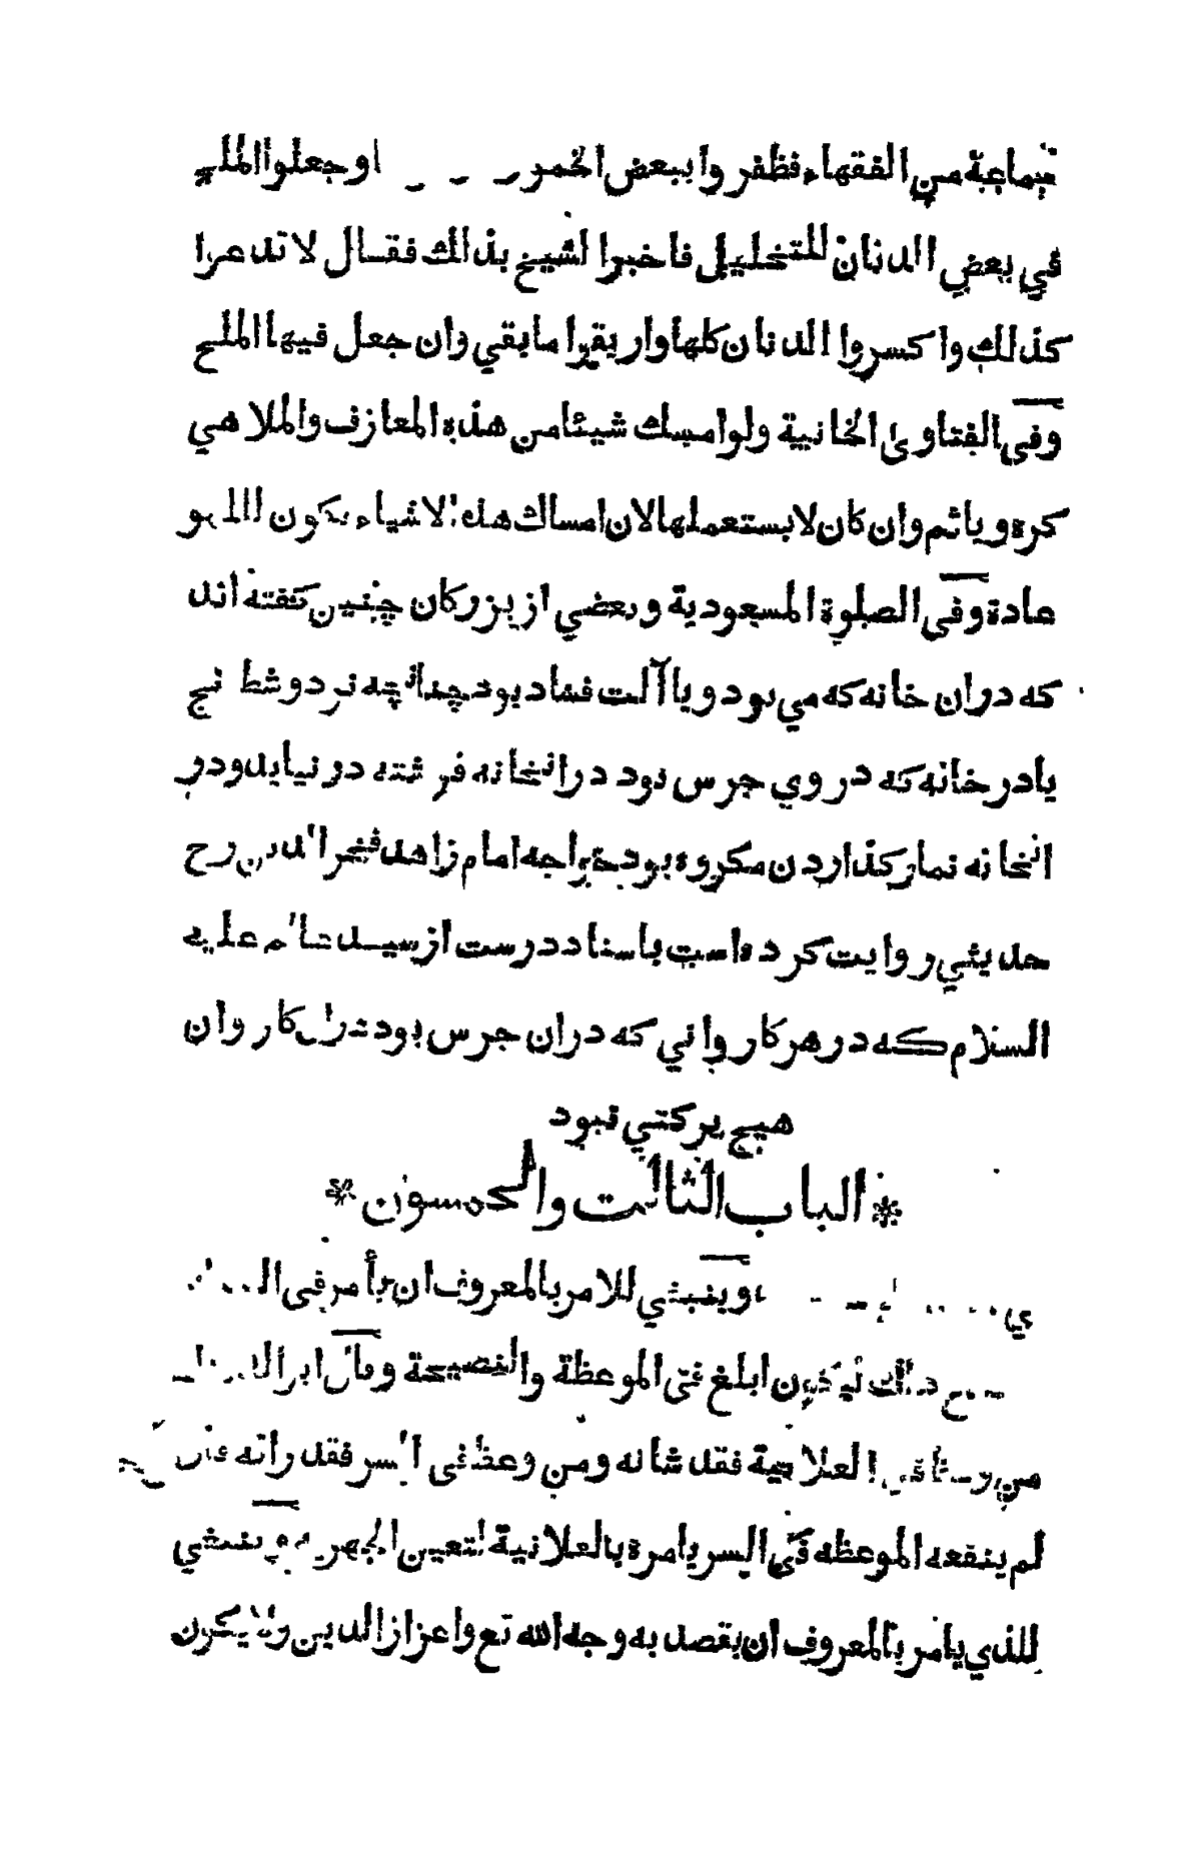 جماعة من الفقهاء فظفروا ببعض الخمور وجعلوا الملح
في بعض الدنان للتخليل فاخبروا لشيخ بذلك فقال لا تدعوا
كذلك واكسروا الدنان كلها واريقوا ما بقي وان جعل فيها الملح
وفي الفتاوى الخانية ولوامسك شيئا من هذه المعازف والملاهي
كره وياثم وان كان لا يستعملها لان امساك هذه الاشياء يكون للهو
عادة وفي الصلوة المسعودية وبعضي از بزركان چنين كفته اند
كه دران خانه كه مي بود ويا آلت فساد بود چنانچه نرد و شطرنج
يا در خانه كه در وي جرس بود درانخانه فرشته در نيايد ودر
انخانه نماز كذاردن مكروه بود خواجه امام زاهد فخر الدين رح
حديثي روايت كرده است باسناد درست از سيد عالم عليه
السلام كه در هر كارواني كه دران جرس بود دران كاروان
هيچ بركتي نبود
* الباب الثالث والخمسون *
وينبغي للامر بالمعروف ان يأمر في
ذلك ليكون ابلغ في الموعظة والنصيحة وقال ابو
من في العلانية فقد شانه ومن وعظ في السر فقد زانه فان
لم ينفعه الموعظه في السر يامره بالعلانية لتعين الجهر وينبغي
للذي يامر بالمعروف ان يقصد به وجه الله تع واعزاز الدين ولا يكون